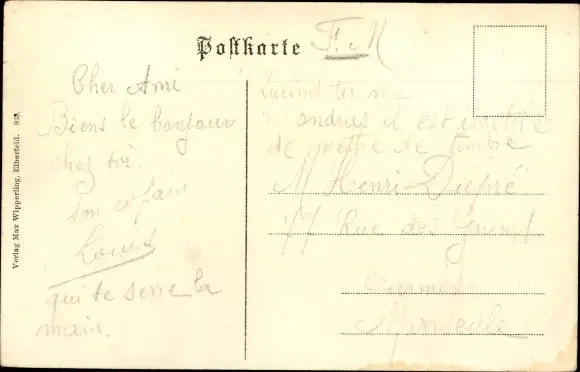 Postkarte
F. M
Cher Ami
Biens le bonjour
chez toi.
ton copain
Louis
qui te serre la
main.
Quand tu me
répondras il est inutile
de mettre de timbre
M Henri Dupré
77 Rue des
Marseille
Verlag Max Wipperling, Elberfeld.